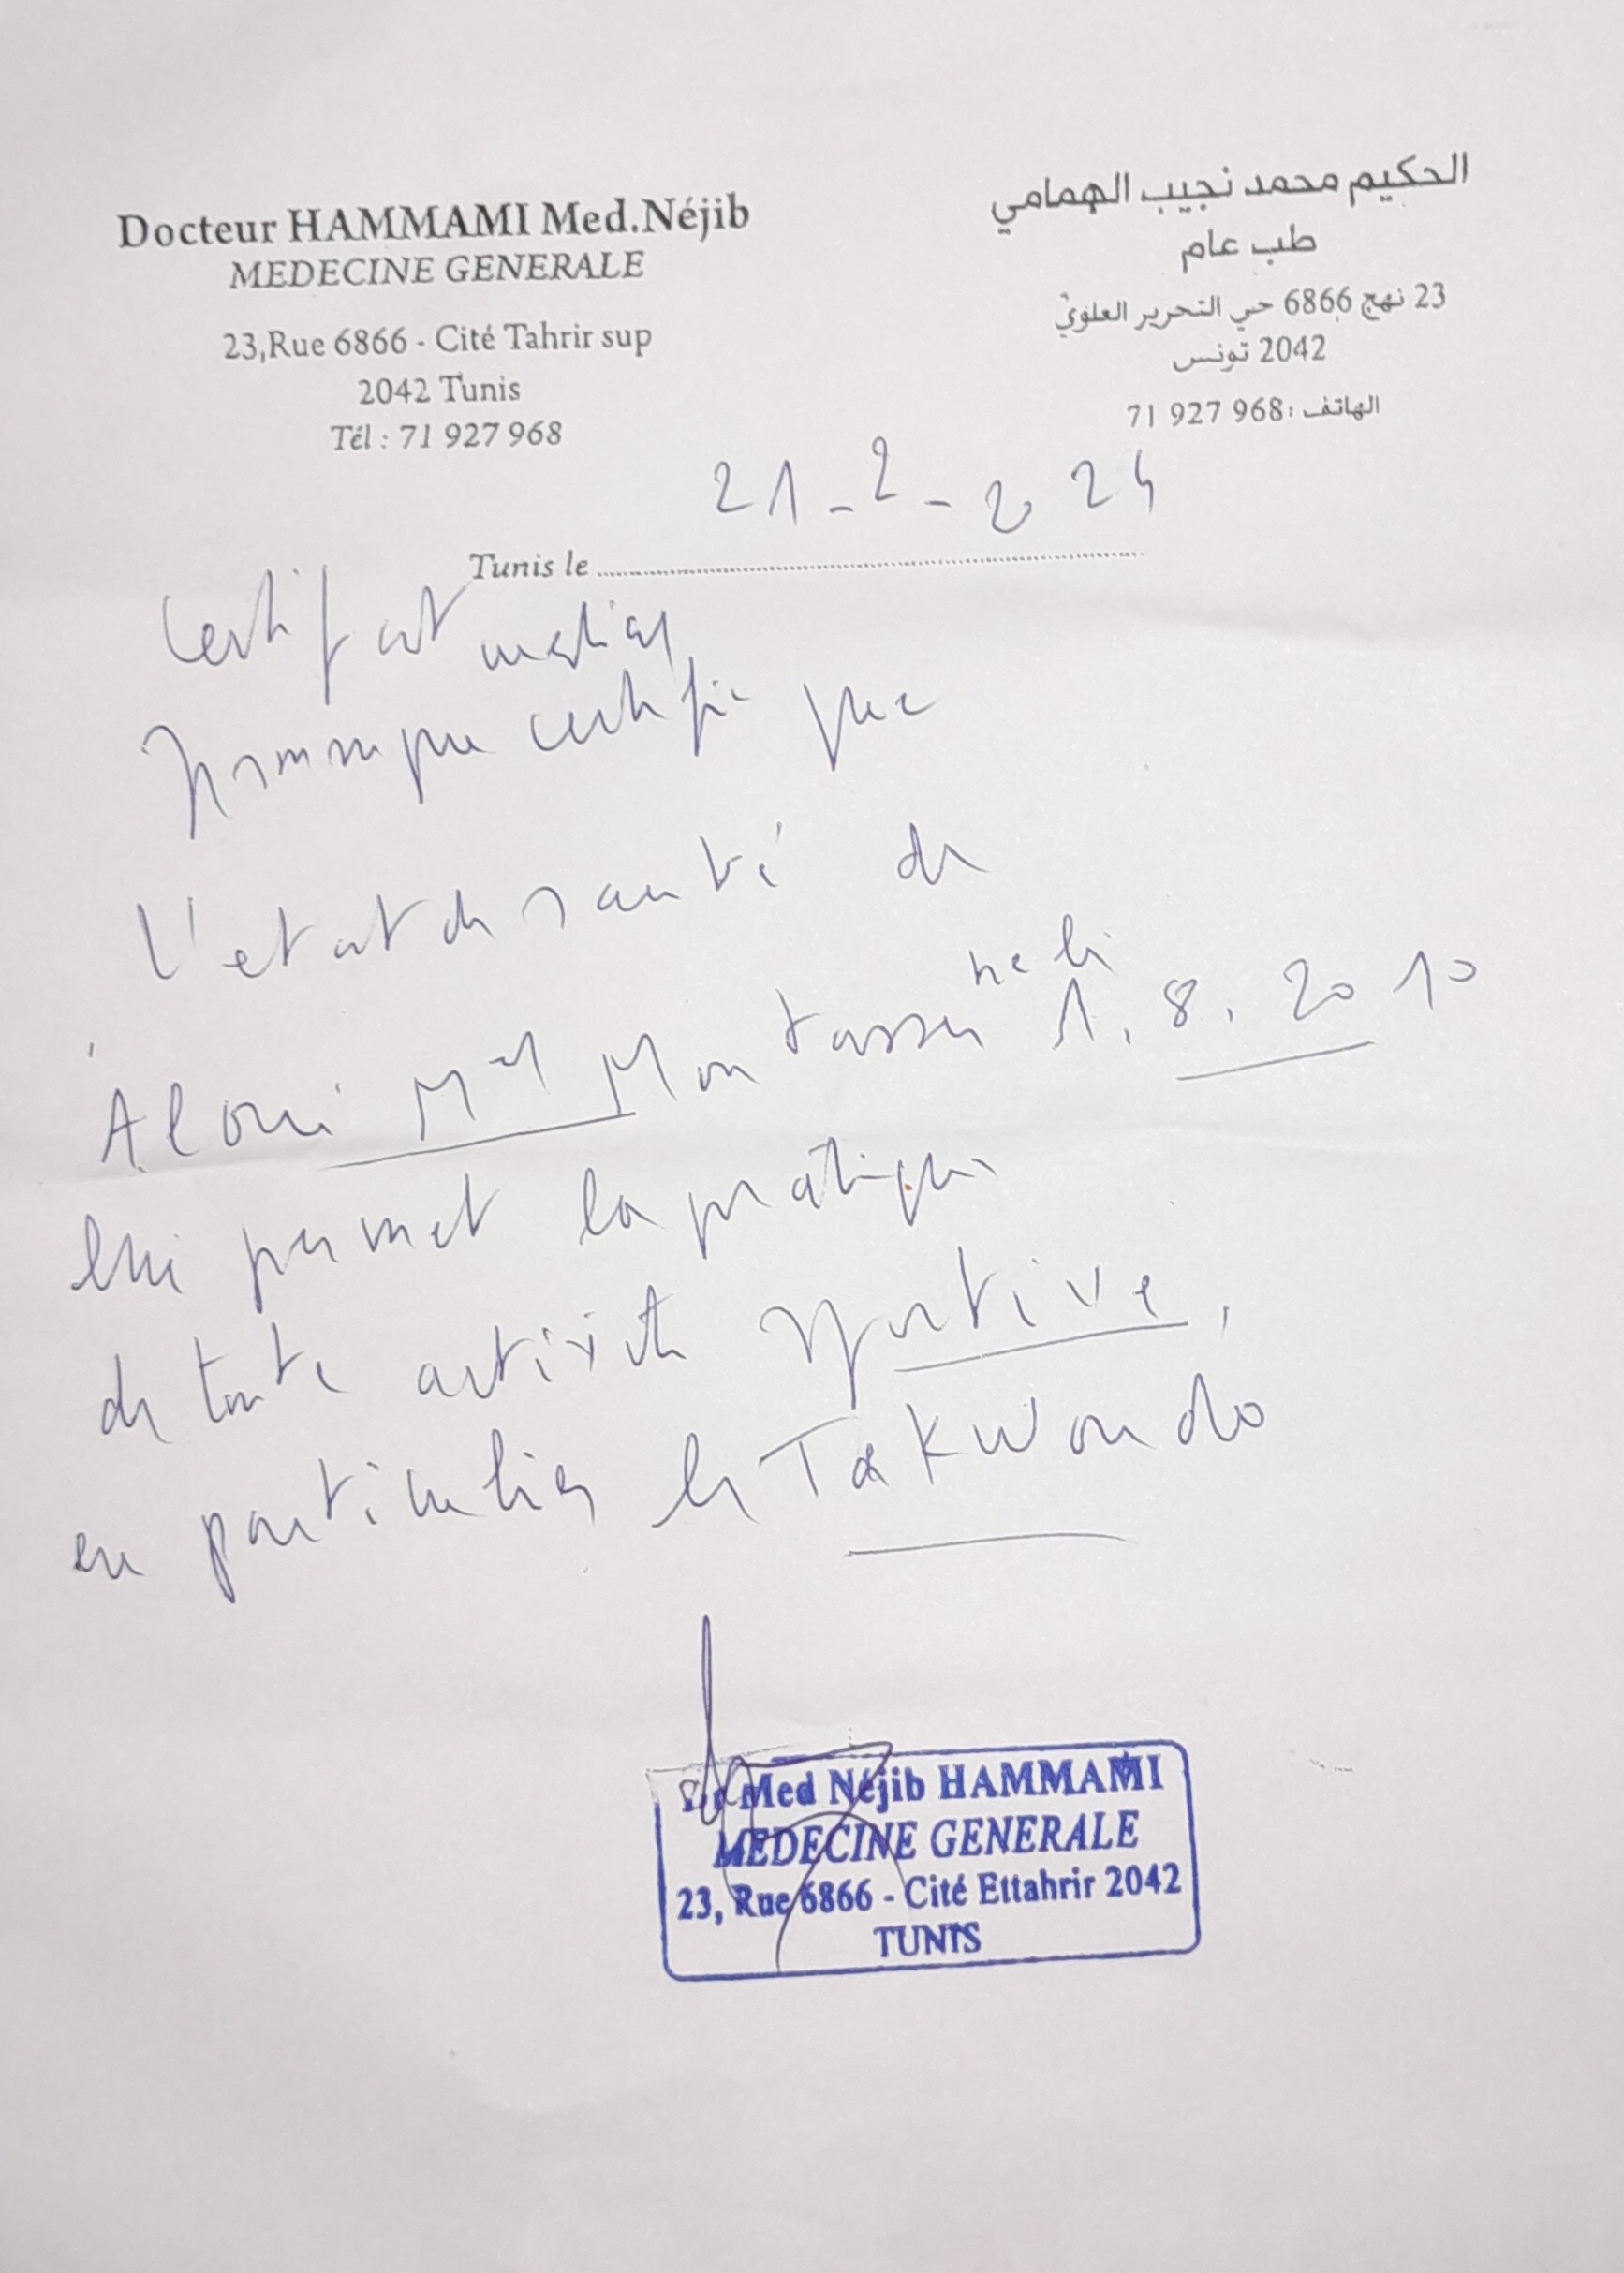 Docteur HAMMAMI Med.Néjib
MEDECINE GENERALE
23,Rue 6866 - Cité Tahrir sup
2042 Tunis
Tél : 71 927 968
الحكيم محمد نجيب الهمامي
طب عام
23 نهج 6866 حي التحرير العلوي
2042 تونس
الهاتف : 968 927 71
Tunis le 21-2-2024
Certificat medical
certifie que
L'etat de santé de
Aloui Med Montasser ne le 1.8.2010
lui permet la pratique
de toute activite sportive,
en particulier le Takwondo
Dr Med Néjib HAMMAMI
MEDECINE GENERALE
23, Rue 6866 - Cité Ettahrir 2042
TUNIS